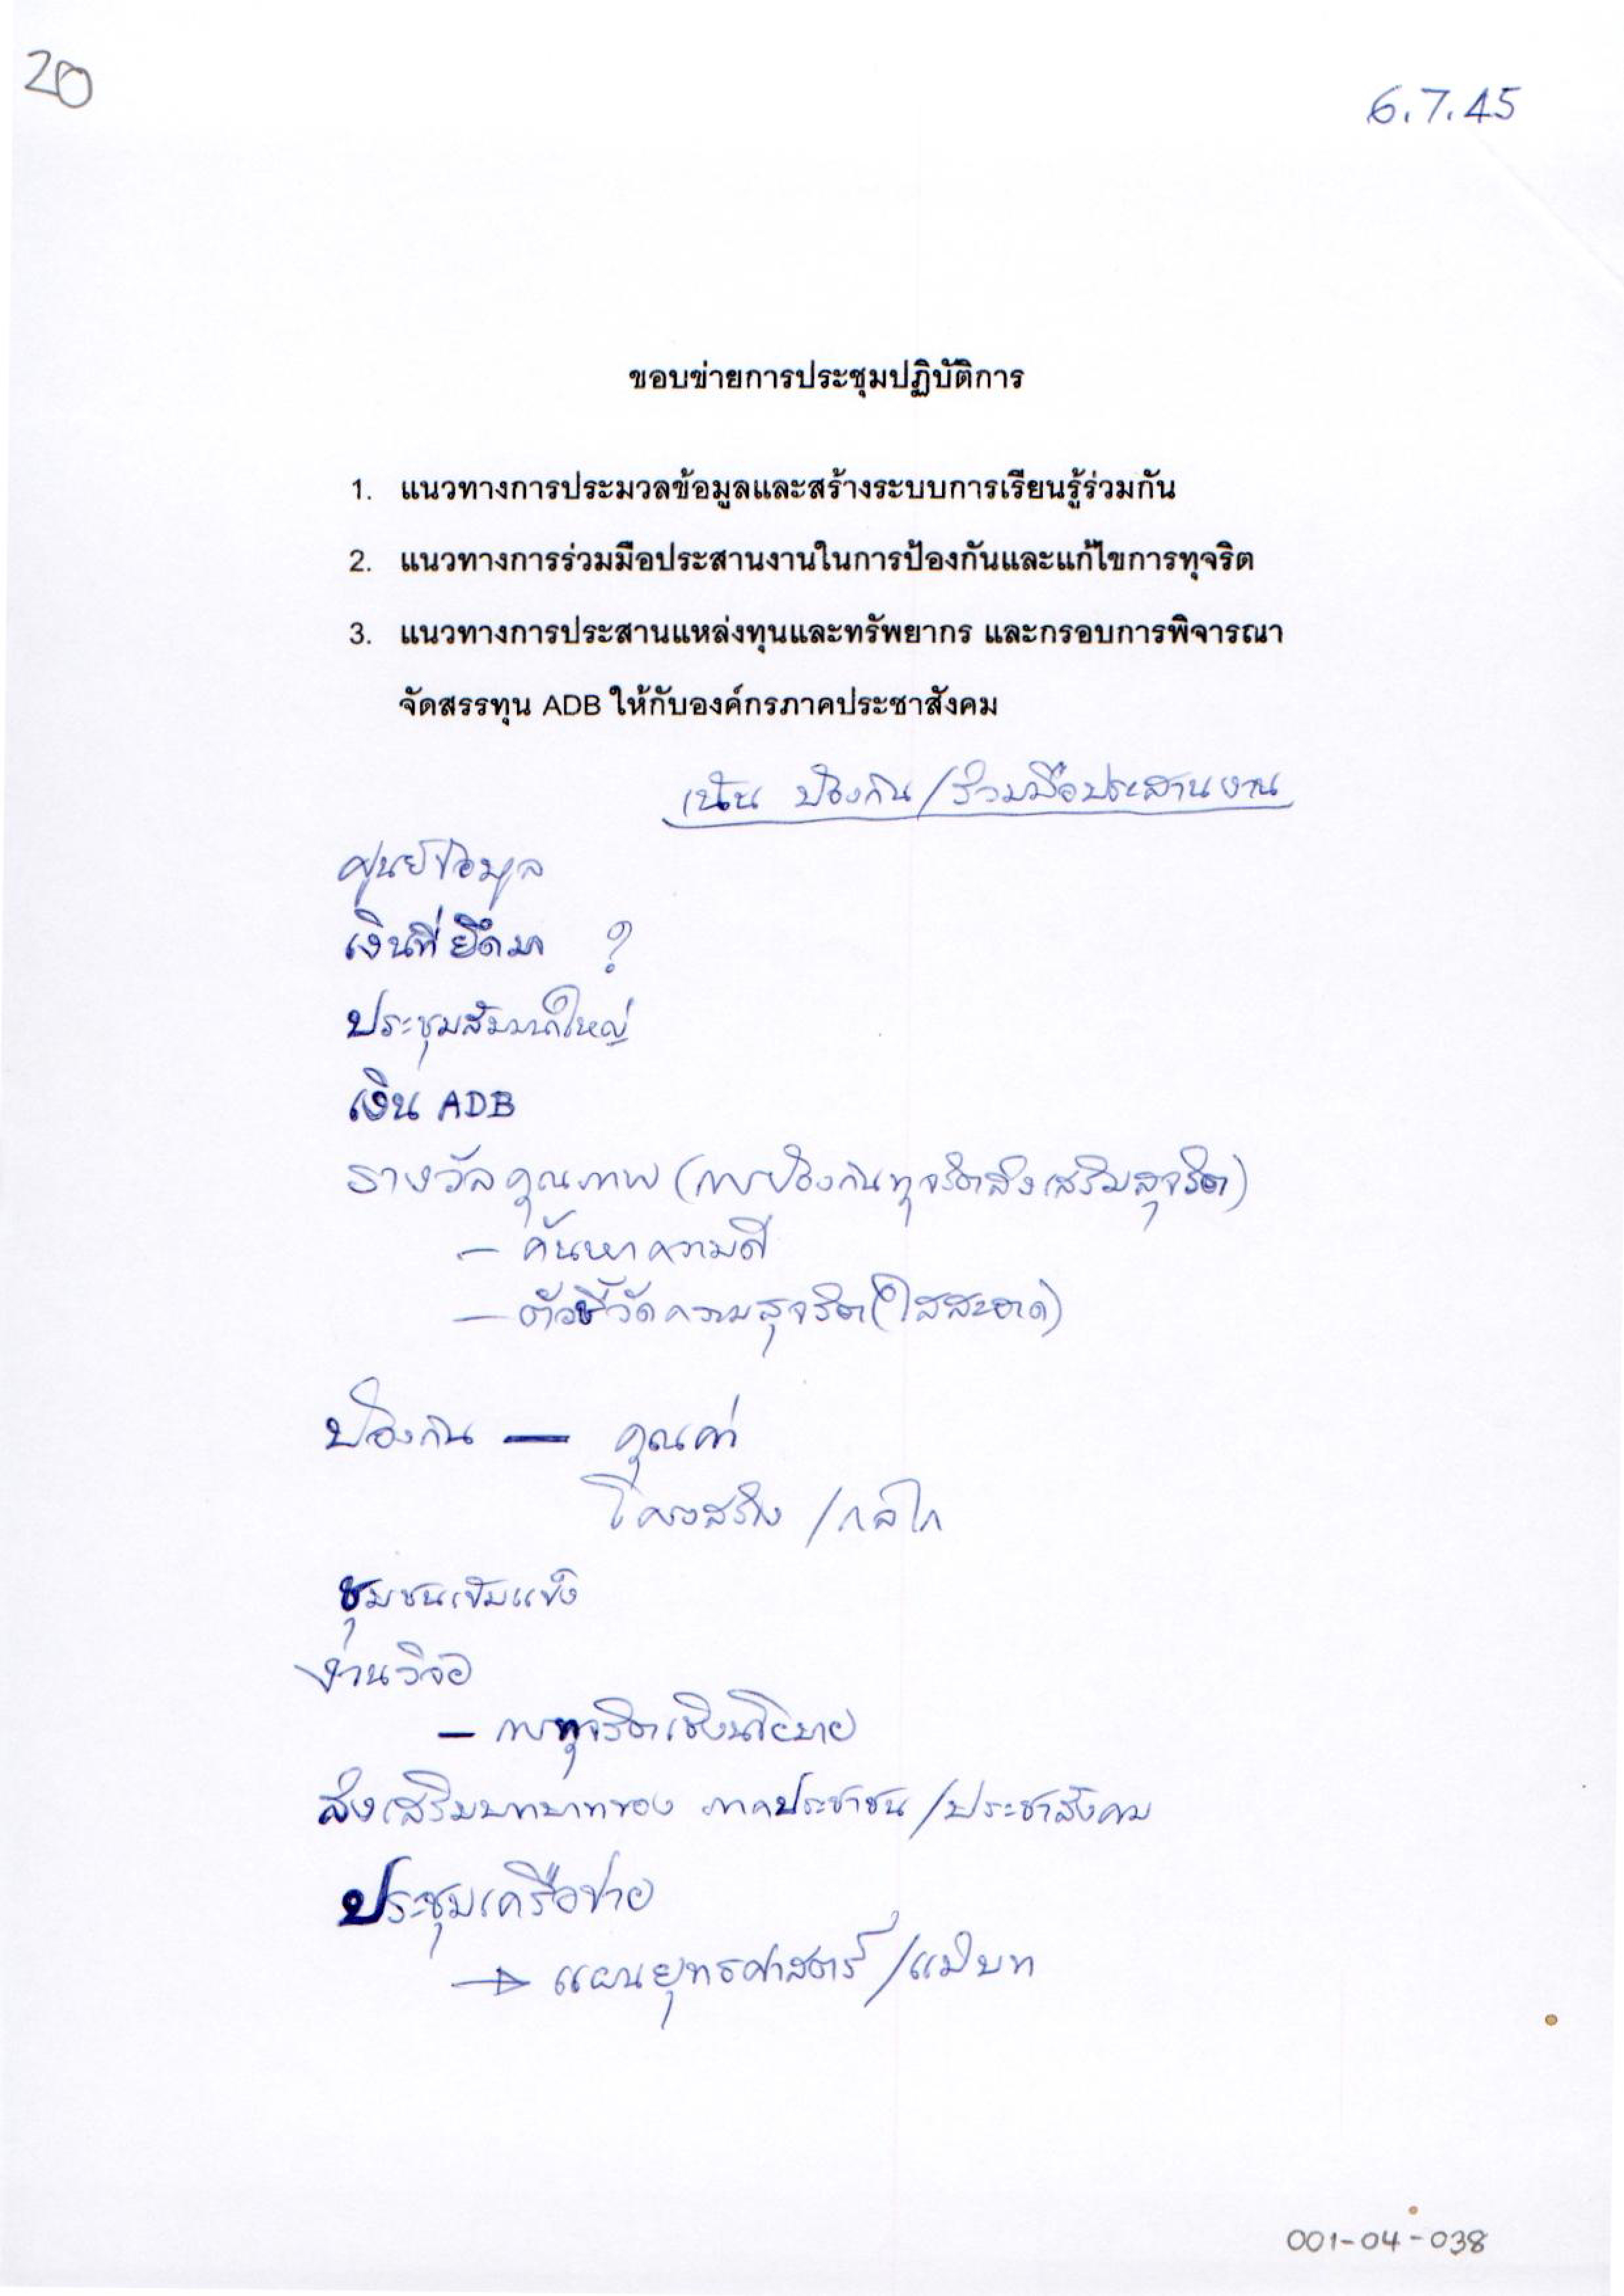 20
6.7.45
ขอบข่ายการประชุมปฏิบัติการ
1. แนวทางการประมวลข้อมูลและสร้างระบบการเรียนรู้ร่วมกัน
2. แนวทางการร่วมมือประสานงานในการป้องกันและแก้ไขการทุจริต
3. แนวทางการประสานแหล่งทุนและทรัพยากร และกรอบการพิจารณา
จัดสรรทุน ADB ให้กับองค์กรภาคประชาสังคม
เน้น ป้องกัน/ร่วมมือประสานงาน
ศูนย์ข้อมูล
เงินที่ยึดมา ?
ประชุมสัมมนาใหญ่
เงิน ADB
รางวัลคุณภาพ (การป้องกันทุจริตส่งเสริมสุจริต)
- ค้นหาความดี
- ตัวชี้วัดความสุจริต (ใสสะอาด)
ป้องกัน — คุณค่า
โครงสร้าง / กลไก
ชุมชนเข้มแข็ง
งานวิจัย
- การทุจริตเชิงนโยบาย
ส่งเสริมบทบาทของ ภาคประชาชน/ประชาสังคม
ประชุมเครือข่าย
→ แผนยุทธศาสตร์/แม่บท
001-04-038